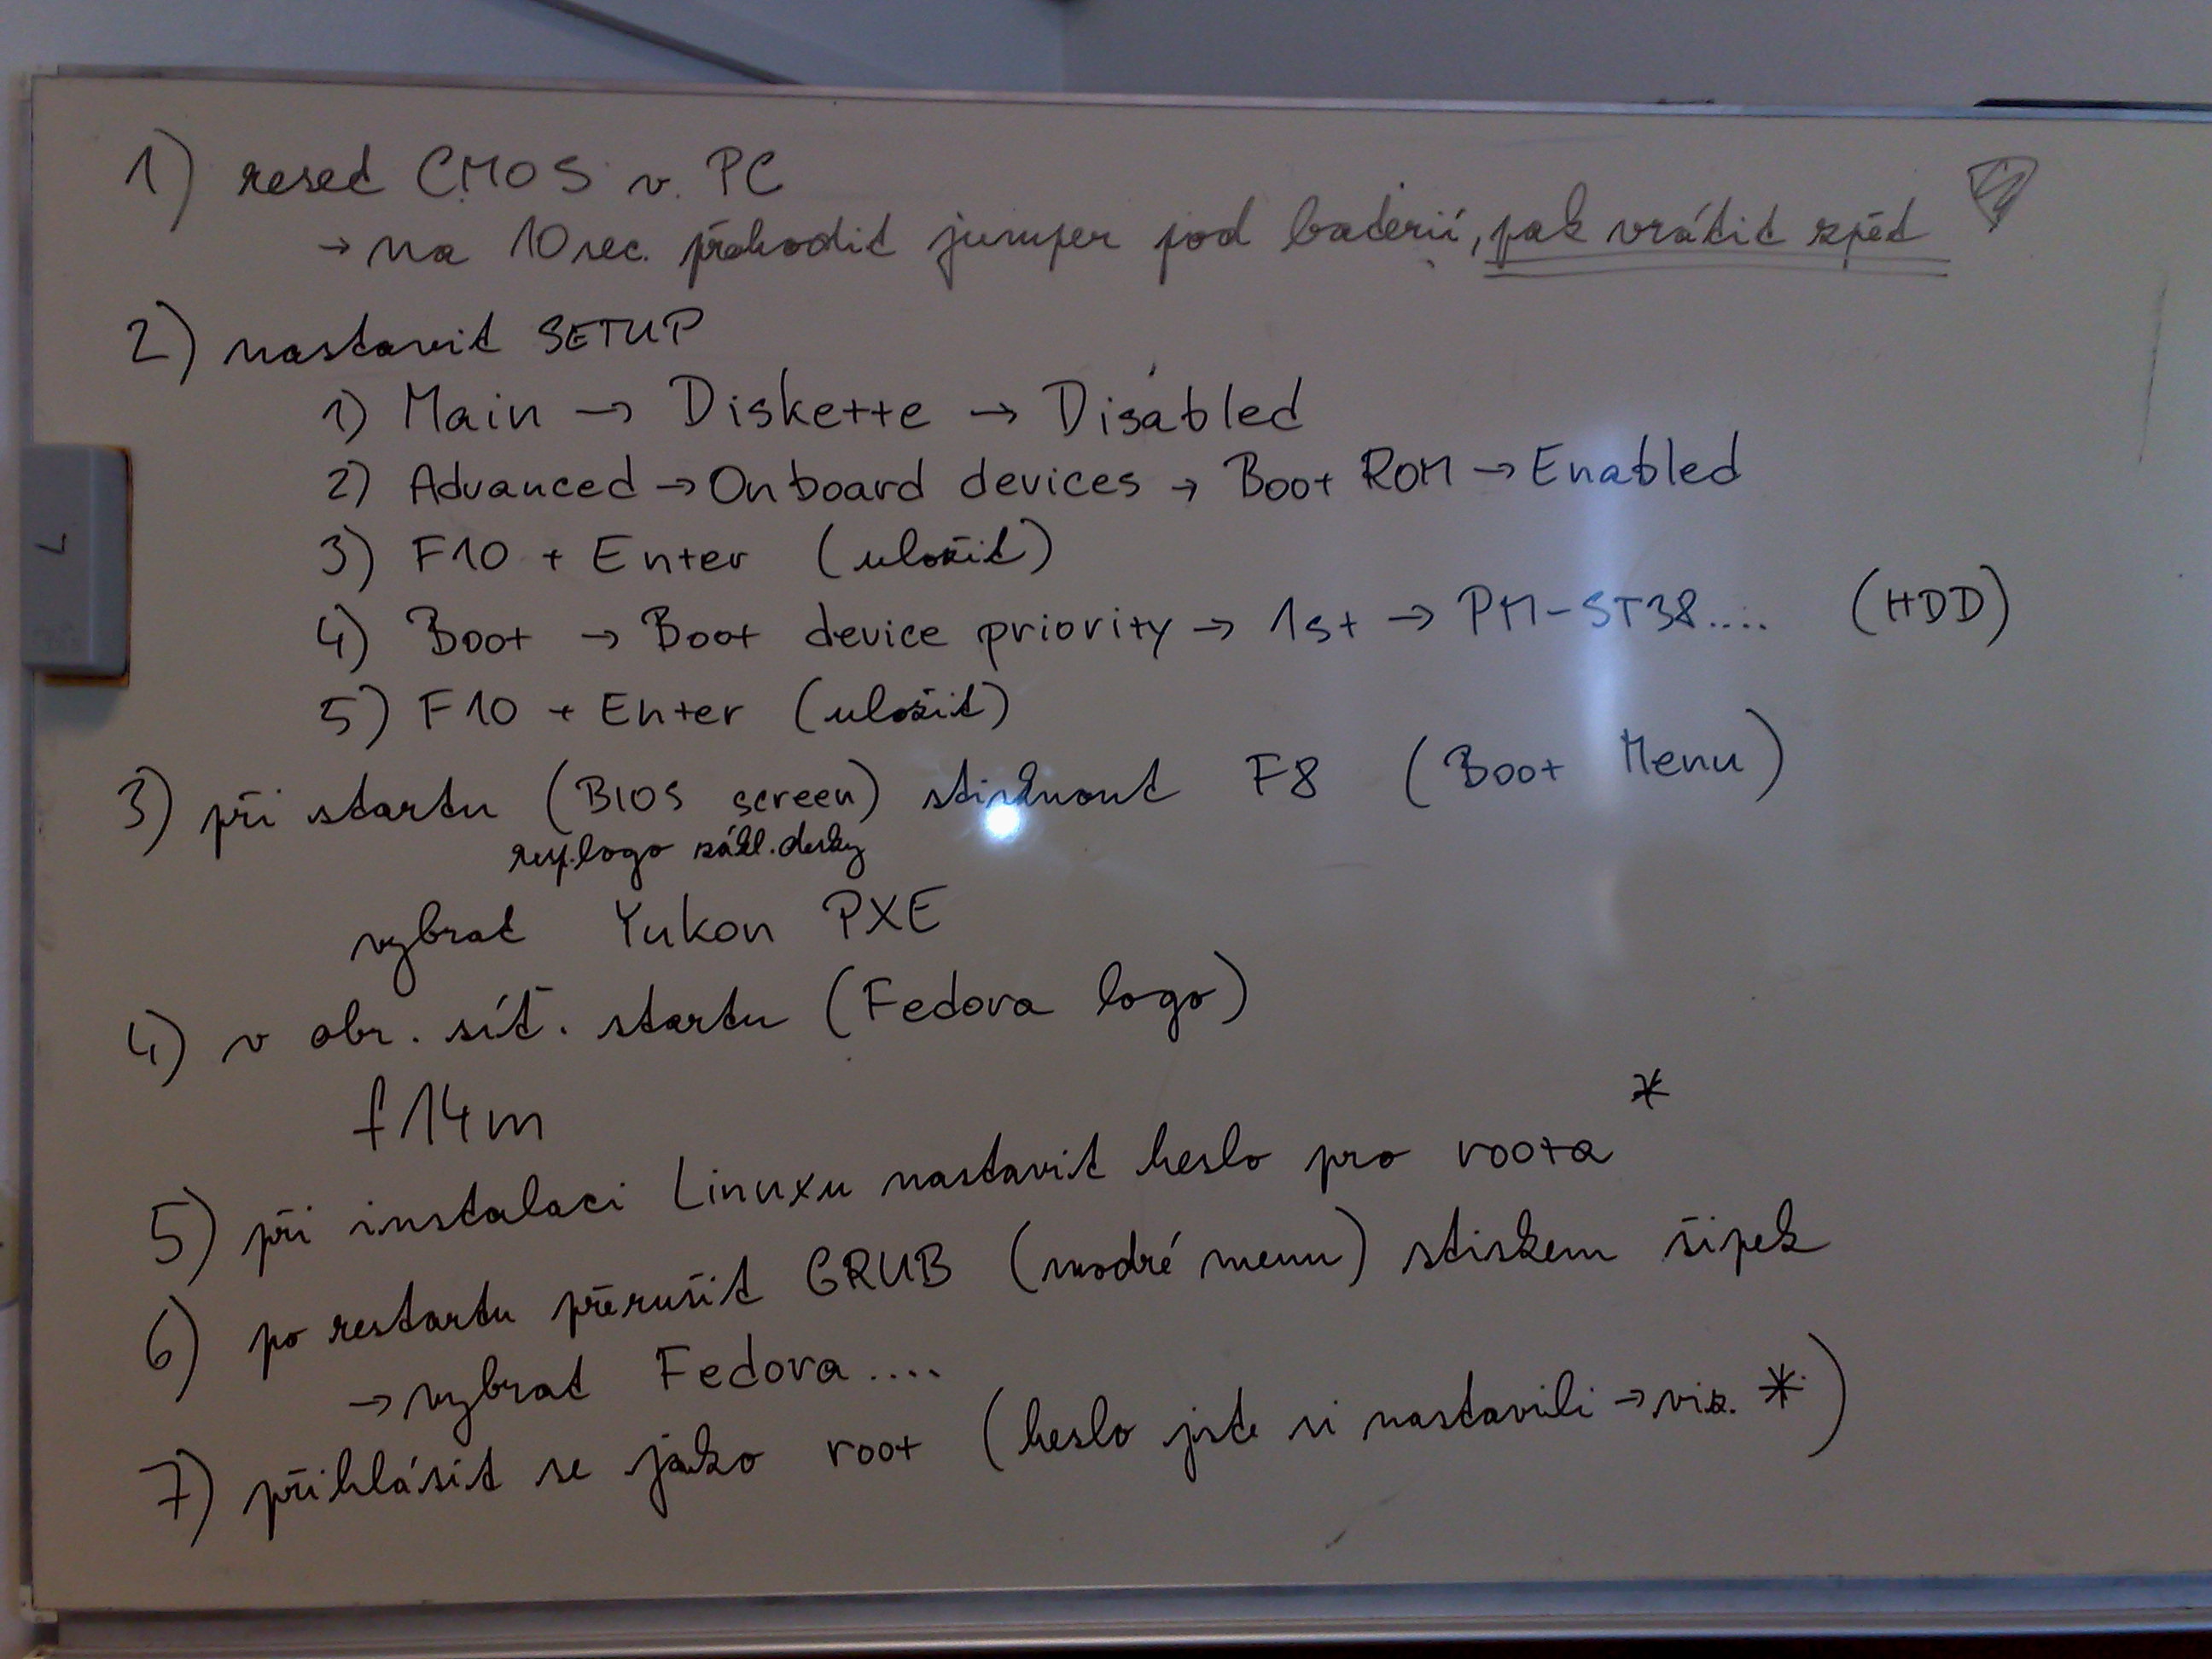 1) reset CMOS v. PC
→ na 10 sec. přehodit jumper pod baterií, pak vrátit zpět
2) nastavit SETUP
1) Main → Diskette → Disabled
2) Advanced → Onboard devices → Boot ROM → Enabled
3) F10 + Enter (uložit)
4) Boot → Boot device priority → 1st → PM-ST38.... (HDD)
5) F10 + Enter (uložit)
3) při startu (BIOS screen) stisknout F8 (Boot Menu)
resp. logo zákl. desky
vybrat Yukon PXE
4) v obr. síť. startu (Fedora logo)
f14m
5) při instalaci Linuxu nastavit heslo pro roota *
6) po restartu přerušit GRUB (modré menu) stiskem šipek
→ vybrat Fedora....
7) přihlásit se jako root (heslo jste si nastavili → viz. *)